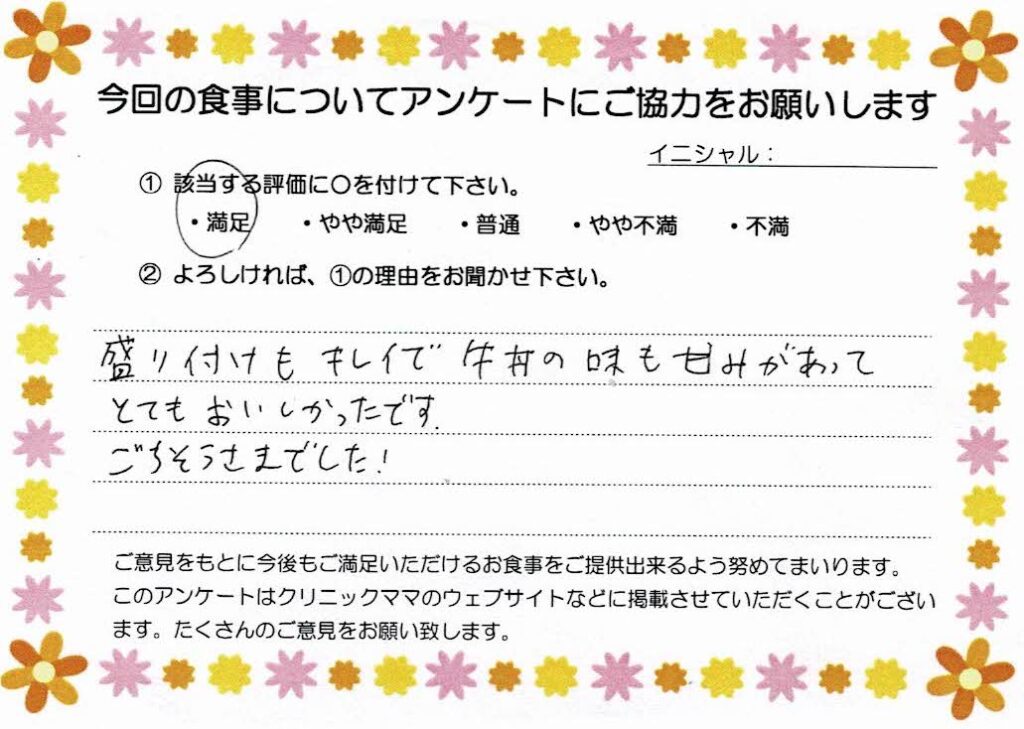 今回の食事についてアンケートにご協力をお願いします
イニシャル：
① 該当する評価に〇を付けて下さい。
・満足 ・やや満足 ・普通 ・やや不満 ・不満
② よろしければ、①の理由をお聞かせ下さい。
盛り付けも キレイで 牛丼の 味も 甘みがあって
とても おいしかったです.
ごちそうさまでした!
ご意見をもとに今後もご満足いただけるお食事をご提供出来るよう努めてまいります。
このアンケートはクリニックママのウェブサイトなどに掲載させていただくことがござい
ます。たくさんのご意見をお願い致します。